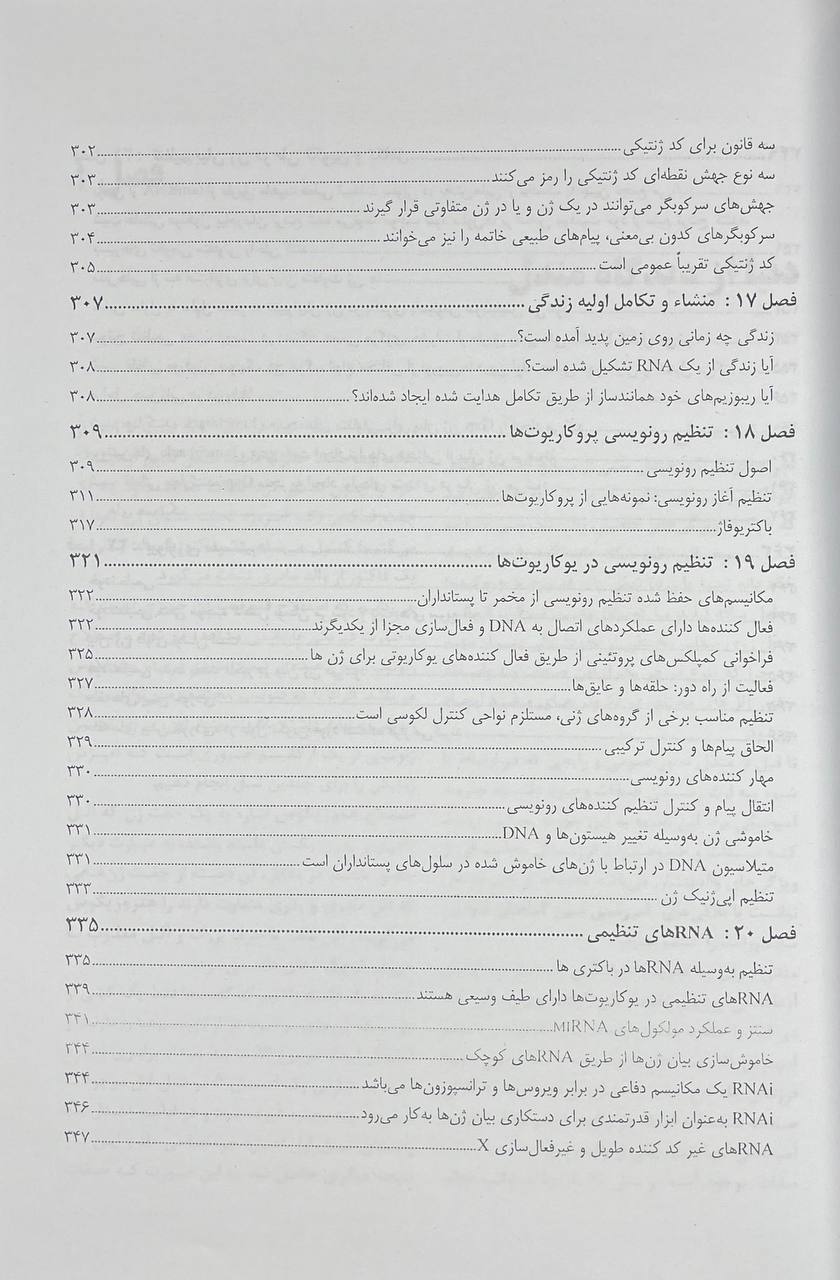 سه قانون برای کد ژنتیکی ۳۰۲
سه نوع جهش نقطه‌ای کد ژنتیکی را رمز می‌کنند ۳۰۳
جهش‌های سرکوبگر می‌توانند در یک ژن و یا در ژن متفاوتی قرار گیرند ۳۰۳
سرکوبگرهای کدون بی‌معنی، پیام‌های طبیعی خاتمه را نیز می‌خوانند ۳۰۴
کد ژنتیکی تقریباً عمومی است ۳۰۵
فصل ۱۷ : منشاء و تکامل اولیه زندگی ۳۰۷
زندگی چه زمانی روی زمین پدید آمده است؟ ۳۰۷
آیا زندگی از یک RNA تشکیل شده است؟ ۳۰۸
آیا ریبوزیم‌های خود همانندساز از طریق تکامل هدایت شده ایجاد شده‌اند؟ ۳۰۸
فصل ۱۸ : تنظیم رونویسی پروکاریوت‌ها ۳۰۹
اصول تنظیم رونویسی ۳۰۹
تنظیم آغاز رونویسی: نمونه‌هایی از پروکاریوت‌ها ۳۱۱
باکتریوفاژ ۳۱۷
فصل ۱۹ : تنظیم رونویسی در یوکاریوت‌ها ۳۲۱
مکانیسم‌های حفظ شده تنظیم رونویسی از مخمر تا پستانداران ۳۲۲
فعال کننده‌ها دارای عملکردهای اتصال به DNA و فعال‌سازی مجزا از یکدیگرند ۳۲۲
فراخوانی کمپلکس‌های پروتئینی از طریق فعال کننده‌های یوکاریوتی برای ژن ها ۳۲۵
فعالیت از راه دور: حلقه‌ها و عایق‌ها ۳۲۷
تنظیم مناسب برخی از گروه‌های ژنی، مستلزم نواحی کنترل لکوسی است ۳۲۸
الحاق پیام‌ها و کنترل ترکیبی ۳۲۹
مهار کننده‌های رونویسی ۳۳۰
انتقال پیام و کنترل تنظیم کننده‌های رونویسی ۳۳۰
خاموشی ژن به‌وسیله تغییر هیستون‌ها و DNA ۳۳۱
متیلاسیون DNA در ارتباط با ژن‌های خاموش شده در سلول‌های پستانداران است ۳۳۱
تنظیم اپی‌ژنیک ژن ۳۳۳
فصل ۲۰ : RNAهای تنظیمی ۳۳۵
تنظیم به‌وسیله RNAها در باکتری ها ۳۳۵
RNAهای تنظیمی در یوکاریوت‌ها دارای طیف وسیعی هستند ۳۳۹
سنتز و عملکرد مولکول‌های MiRNA ۳۴۱
خاموش‌سازی بیان ژن‌ها از طریق RNAهای کوچک ۳۴۴
RNAi یک مکانیسم دفاعی در برابر ویروس‌ها و ترانسپوزون‌ها می‌باشد ۳۴۴
RNAi به‌عنوان ابزار قدرتمندی برای دستکاری بیان ژن‌ها به‌کار می‌رود ۳۴۶
RNAهای غیر کد کننده طویل و غیرفعال‌سازی X ۳۴۷